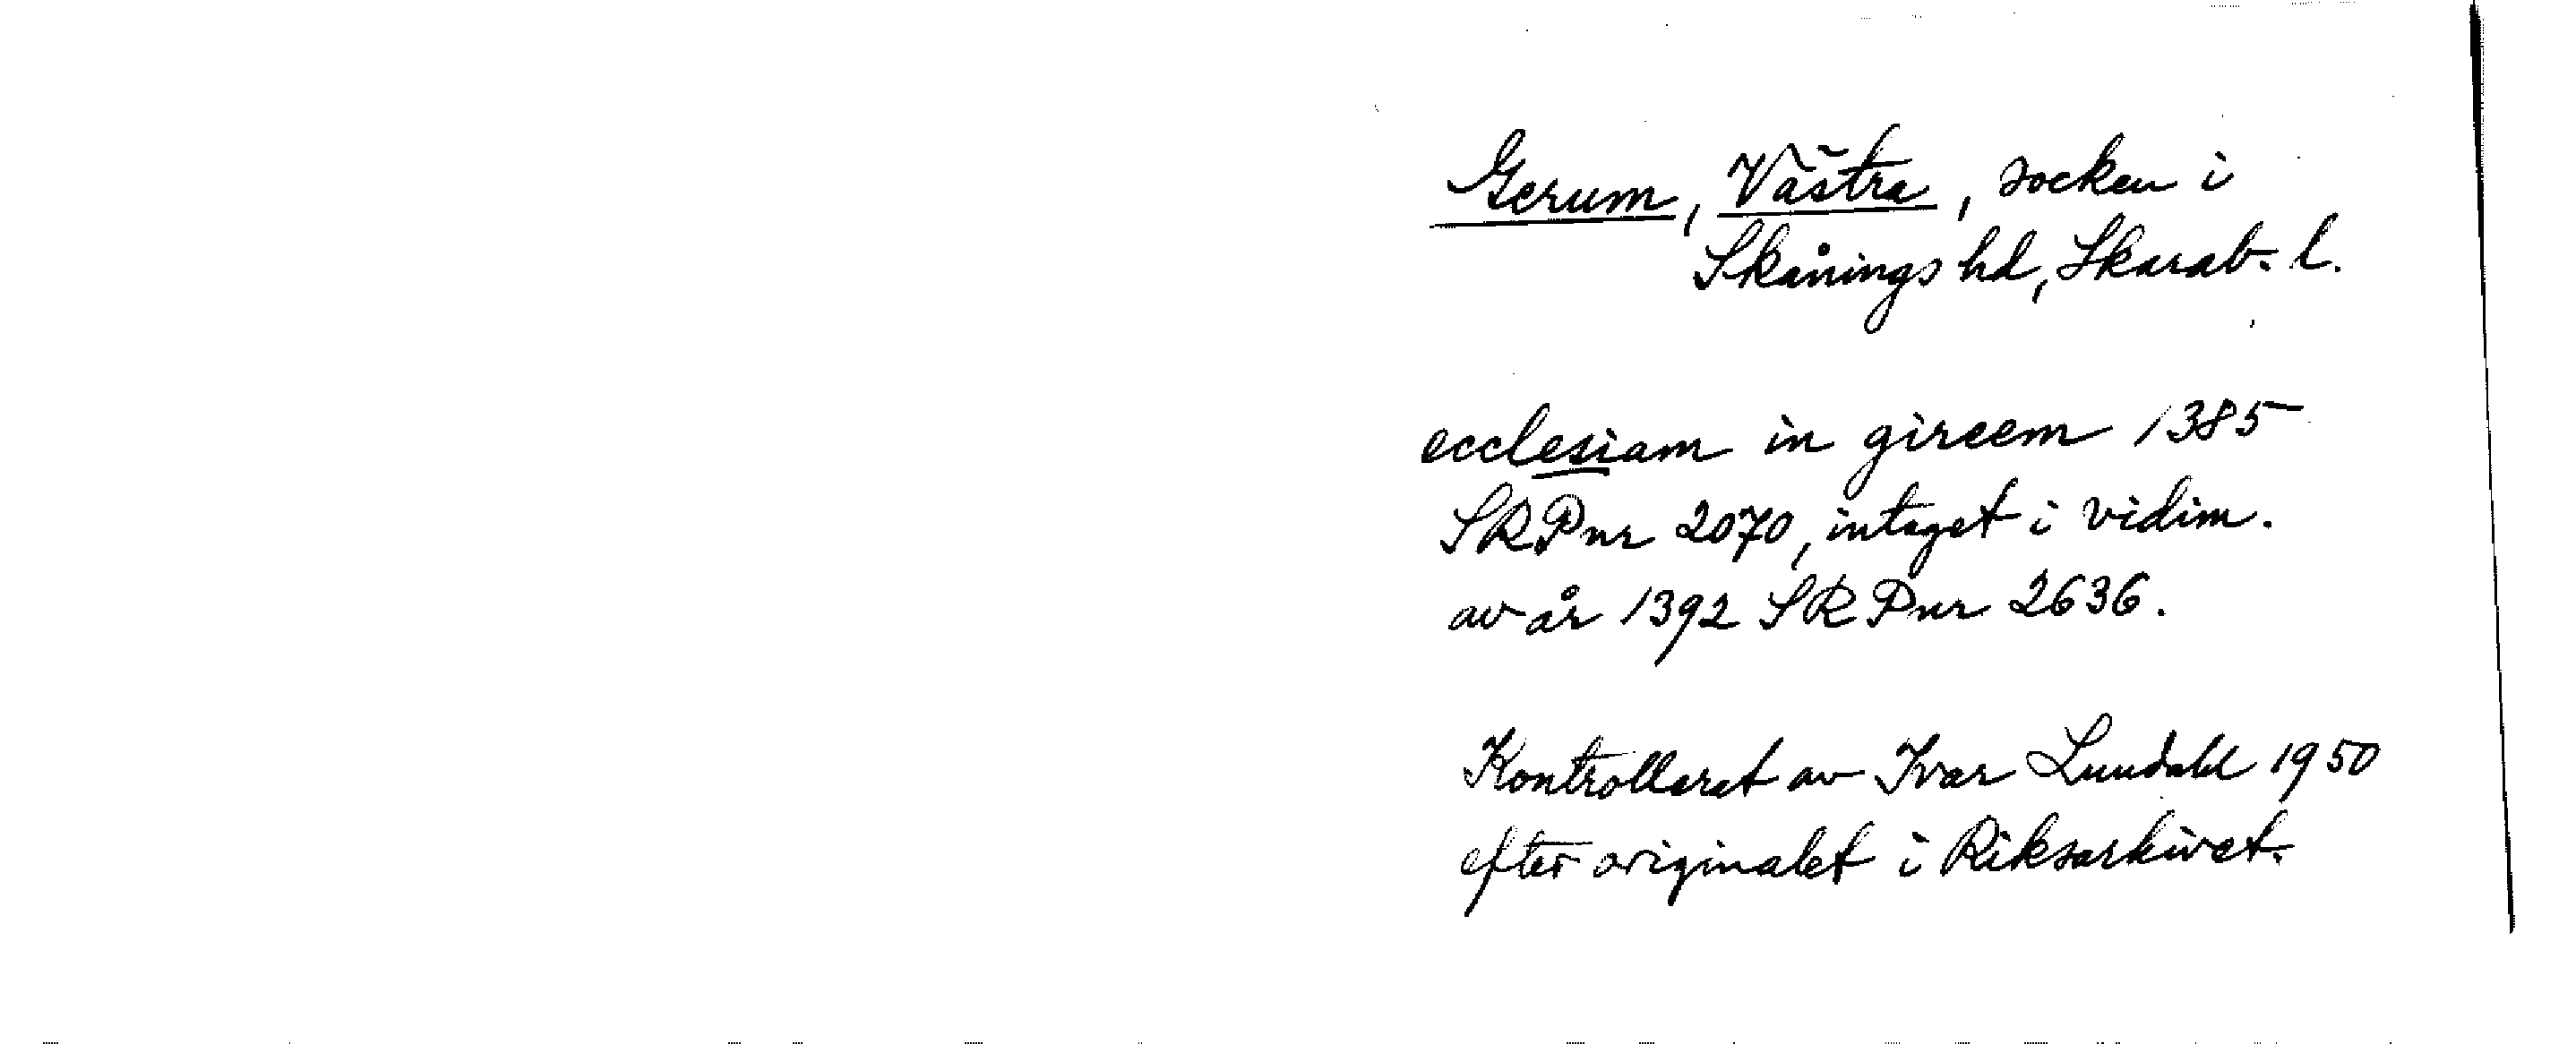 Gerum, Västra, socken i
Skånings hd, Skarab. l.
ecclesiam in gireem 1385
SRPnr 2070, intaget i vidim.
av år 1392 SRPnr 2636.
Kontrollerat av Ivar Lundahl 1950
efter originalet i Riksarkivet.